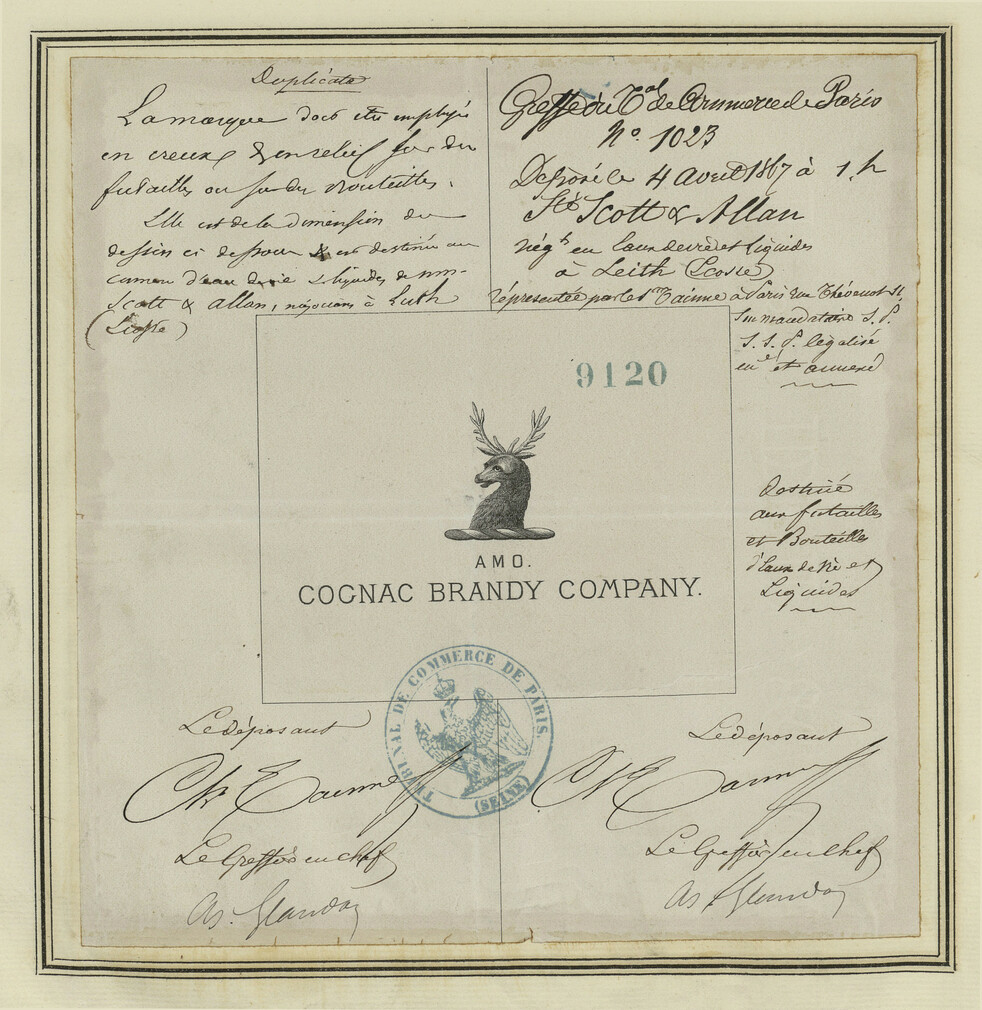 Duplicata
La marque doit être employée
en creux & en relief sur des
futailles ou sur des Bouteilles.
Elle est de la dimension du
dessin ci dessous & est destinée au
d'eau de vie & liquides de MM.
Scott & Allan, négociants à Leith
(Ecosse)
Greffe du Tal de Commerce de Paris
No. 1023
Déposé le 4 Avril 1867 à 1 h
Sté Scott & Allan
négts en Eaux de vie et Liquides
à Leith (Ecosse)
représentée par le Sr Tainne à Paris rue Thévenot
Son mandataire S. P.
S. S. P. légalisé
enré et annexé
9120
AMO.
COGNAC BRANDY COMPANY.
Destiné
aux futailles
et Bouteilles
d'Eaux de Vie et
Liquides
TRIBUNAL DE COMMERCE DE PARIS.
(SEINE)
Le déposant
Le déposant
Ch E Tainne
Ch E Tainne
Le Greffier en chef
Le Greffier en Chef